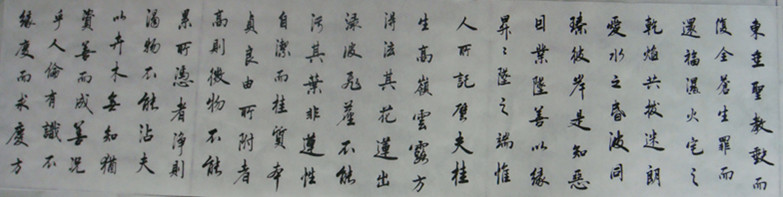 東垂聖教缺而
復全蒼生罪而
還福濕火宅之
乾焰共拔迷朗
愛水之昏波同
臻彼岸是知惡
因業墜善以緣
昇〻墜之端惟
人所託譬夫桂
生高嶺雲露方
得泫其花蓮出
淥波飛塵不能
污其葉非蓮性
自潔而桂質本
貞良由所附者
高則微物不能
累所憑者淨則
濁物不能沾夫
以卉木無知猶
資善而成善況
乎人倫有識不
緣慶而求慶方